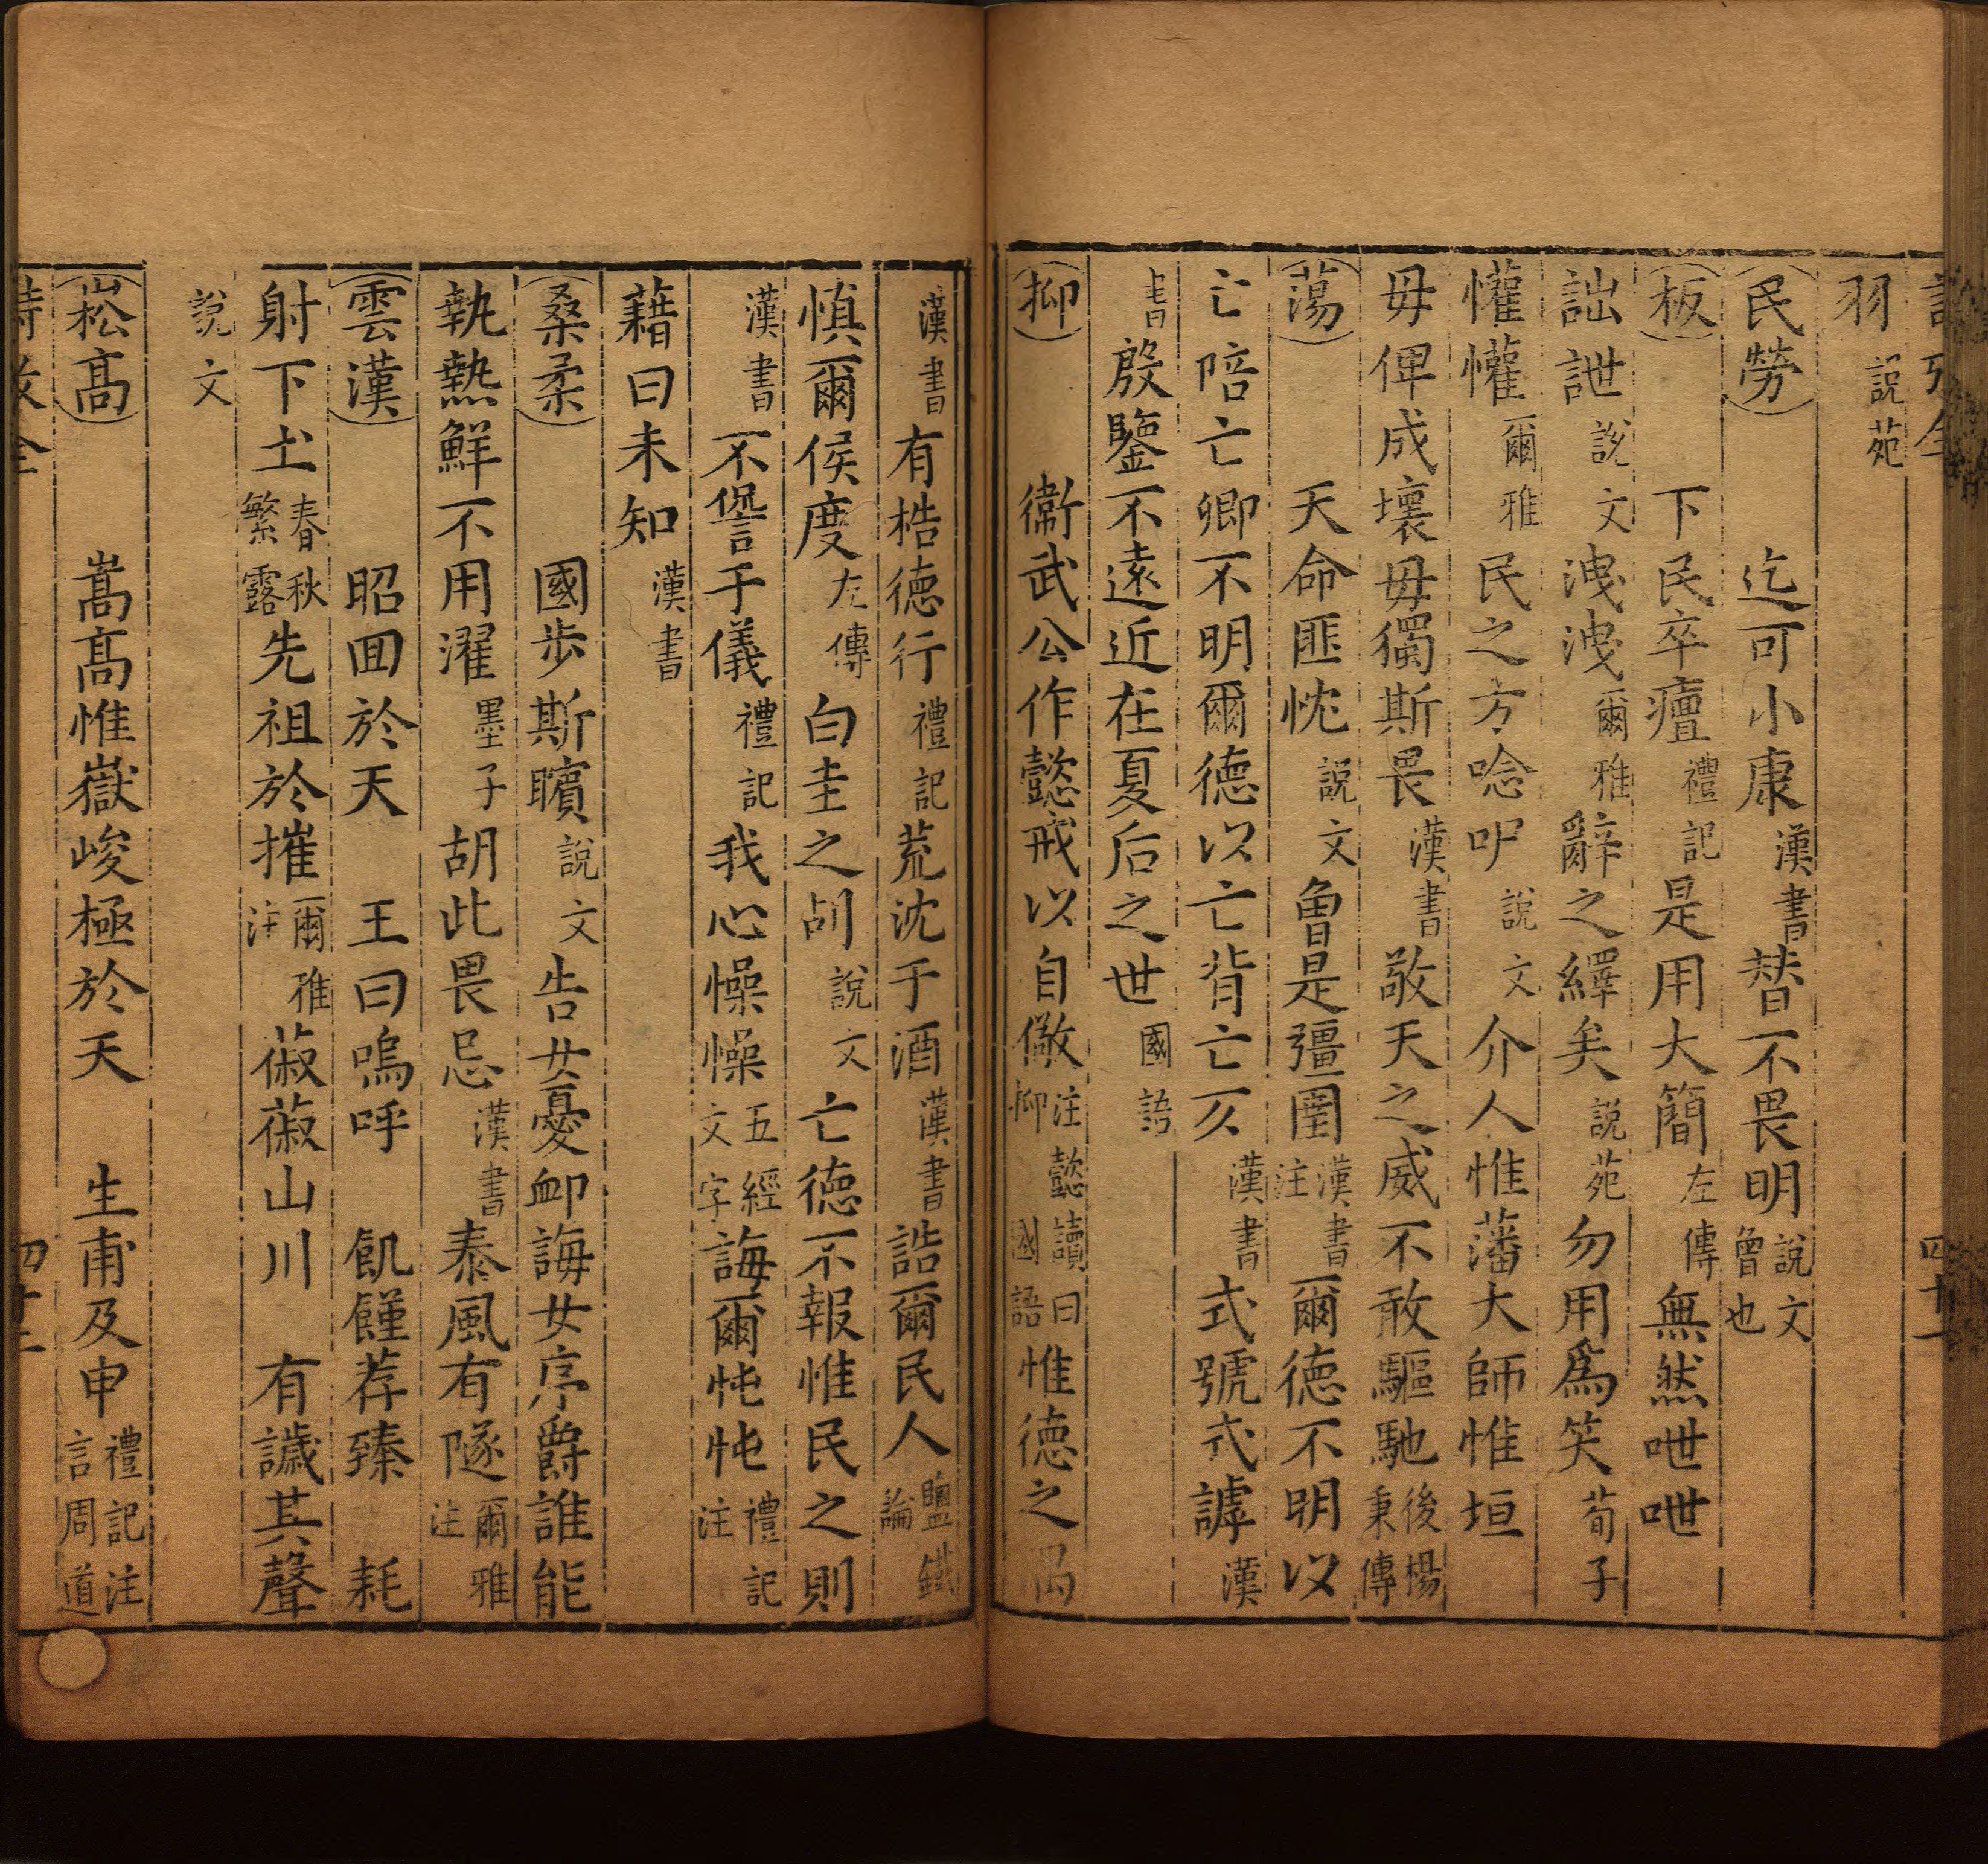 羽說苑
民勞　迄可小康漢書　朁不畏明說文曾也
板　下民卒癉禮記　是用大簡左傳　無然呭呭
詍詍說文　洩洩爾雅　辭之繹矣說苑　勿用爲笑荀子
懽懽爾雅　民之方唸㕧說文　介人惟藩大師惟垣
毋俾成壞毋獨斯畏漢書　敬天之威不敢驅馳後楊秉傳
蕩　天命匪忱說文　曾是彊圉漢書注　爾德不明以
亡陪亡卿不明爾德以亡背亡仄漢書　式號式謼漢
書　殷鑒不遠近在夏后之世國語
抑　衞武公作懿戒以自儆注懿讀曰抑國語　惟德之
漢書　有梏德行禮記　荒沈于酒漢書　誥爾民人鹽鐵論
慎爾侯度左傳　白圭之刮說文　亡德不報惟民之則
漢書　不諐于儀禮記　我心懆懆五經文字　誨爾忳忳禮記注
藉曰未知漢書
桑柔　國步斯矉說文　告女憂卹誨女序爵誰能
執熱鮮不用濯墨子　胡此畏忌漢書　泰風有隧爾雅注
雲漢　昭回於天　王曰嗚呼　飢饉荐臻　耗
射下土春秋繁露　先祖於摧爾雅注　蔋蔋山川　有䜋其聲
說文
崧高　嵩高惟嶽峻極於天　生甫及申禮記注言周道